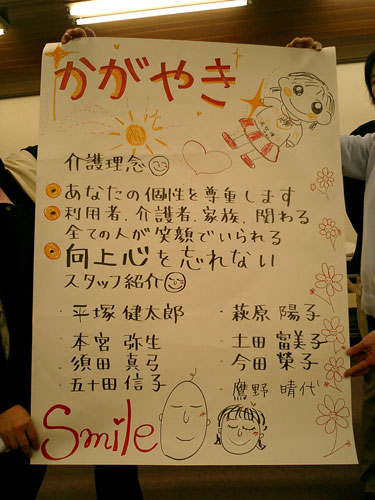 かがやき
介護理念
あなたの個性を尊重します
利用者、介護者、家族、関わる
全ての人が笑顔でいられる
向上心を忘れない
スタッフ紹介
・平塚 健太郎
・本宮 弥生
・須田 真弓
・五十田 信子
・萩原 陽子
・土田 富美子
・今田 榮子
・鷹野 晴代
Smile